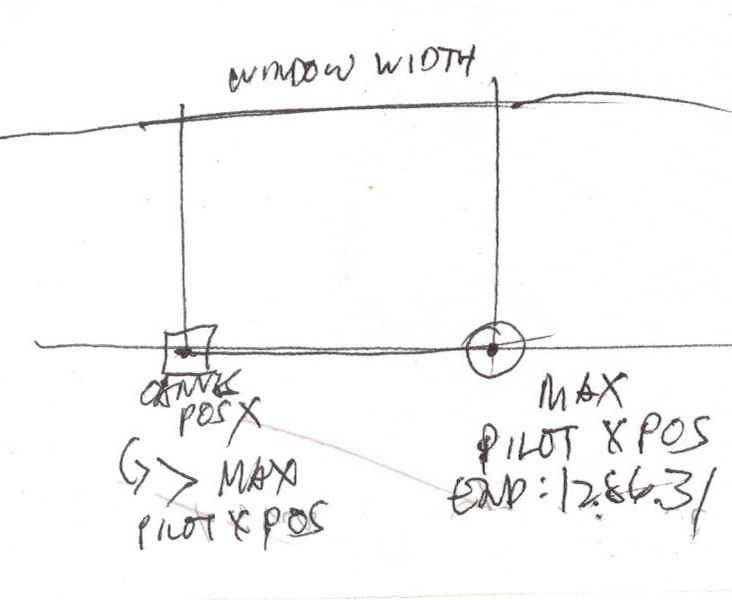 WINDOW WIDTH
CANVAS
POS X
> MAX
PILOT X POS
MAX
PILOT X POS
END: